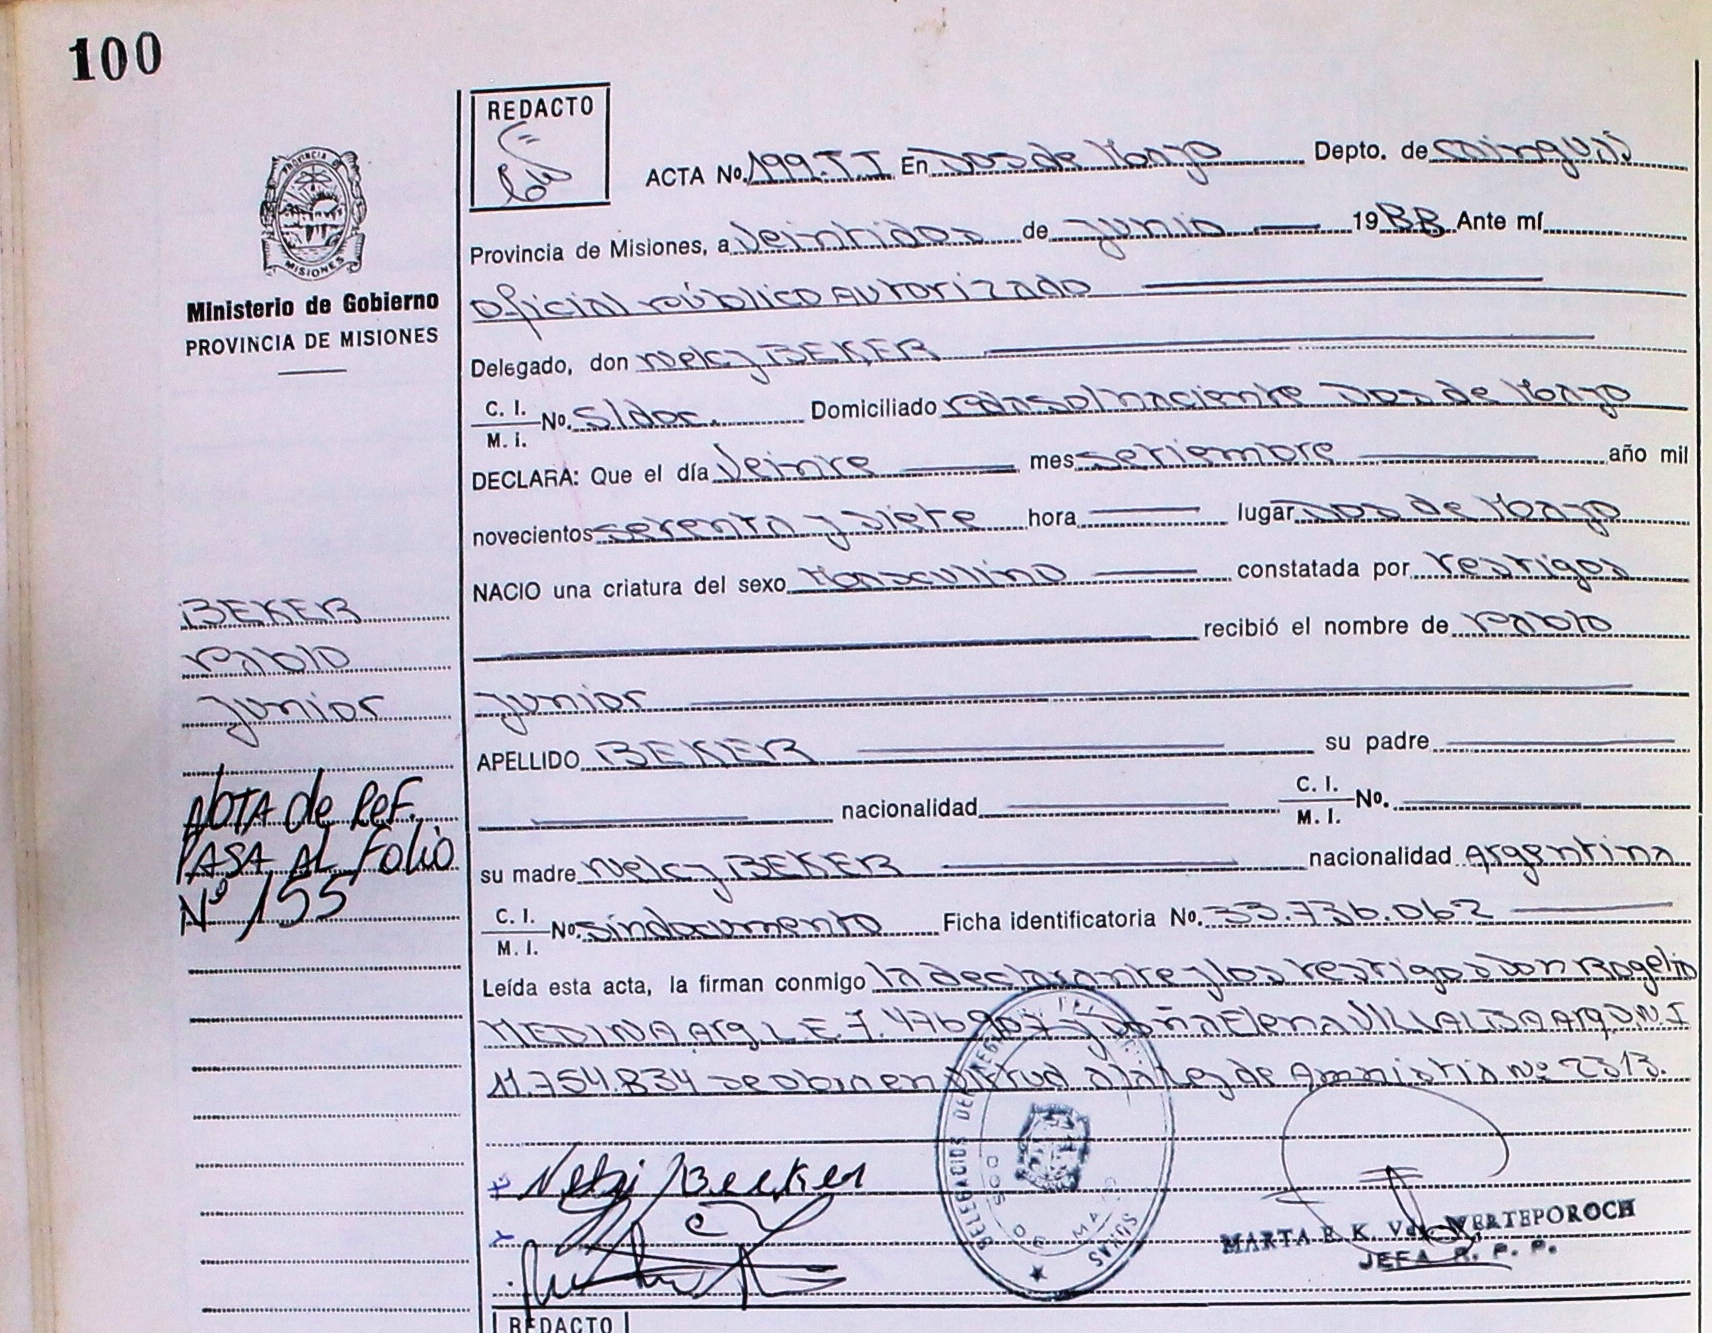 100
REDACTO
PROVINCIA DE
MISIONES
Ministerio de Gobierno
PROVINCIA DE MISIONES
ACTA No. 199.T.I En Dos de Mayo Depto. de Cainguás
Provincia de Misiones, a Veintidos de Junio 1988 Ante mí
Oficial público autorizado
Delegado, don Nelcy BEKER
C. I. / M. I. No. S/doc. Domiciliado Pdasolnaciente Dos de Mayo
DECLARA: Que el día Veinte mes setiembre año mil
novecientos setenta y siete hora lugar Dos de Mayo
NACIO una criatura del sexo Masculino constatada por testigos
recibió el nombre de Pablo
Junior
APELLIDO BEKER su padre
nacionalidad C. I. / M. I. No.
su madre Nelcy BEKER nacionalidad Argentina
C. I. / M. I. No. sindocumento Ficha identificatoria No. 33.736.062
Leída esta acta, la firman conmigo la declarante y los testigos Don Rogelio
MEDINA Arg. L.E. 7.476.907 y Doña Elena VILLALBA Arg D.N.I
11.754.834 se obra en virtud a la Ley de Amnistia Nº 2313.
BEKER
Pablo
Junior
NOTA de Ref.
PASA AL Folio
Nº 155
Nelsi Becker
DOS DE MAYO
MISIONES
MARTA E. K. Vda. WERTEPOROCH
JEFA R. P. P.
REDACTO